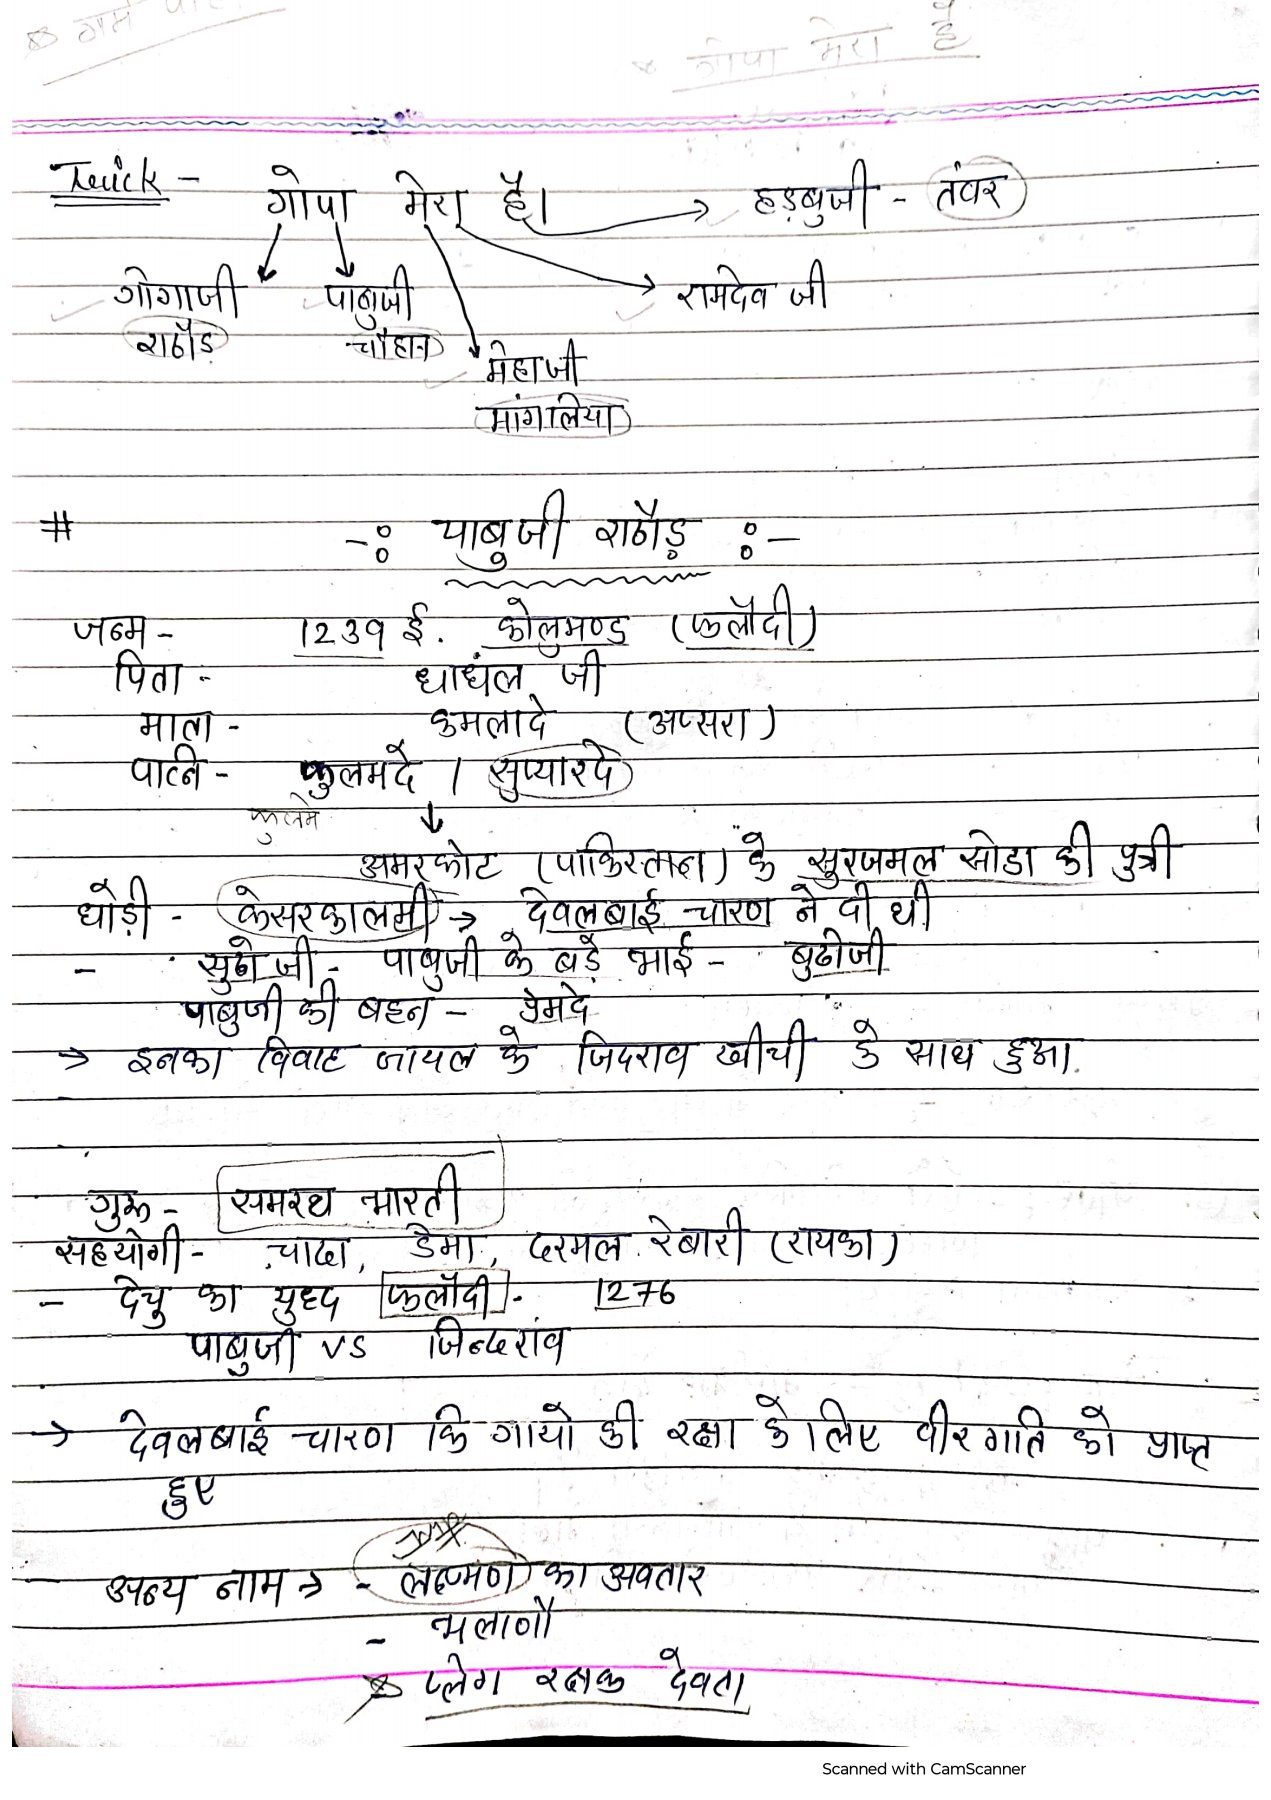 गोपा मेरा है
Trick - गोपा मेरा है। हड़बुजी - तंवर
गोगाजी पाबुजी रामदेव जी
राठौड़ चौहान
मेहाजी
मांगलिया
# -: पाबुजी राठौड़ :-
जन्म - 1239 ई. कोलुमण्ड (फलौदी)
पिता - धाधंल जी
माता - कमलादे (अप्सरा)
पत्नि - फुलमदे / सुप्यारदे
अमरकोट (पाकिस्तान) के सुरजमल सोडा की पुत्री
घोड़ी - केसरकालमी → देवलबाई चारण ने दी थी
- सुढो जी - पाबुजी के बड़े भाई - बुढोजी
पाबुजी की बहन - प्रेमदे
→ इनका विवाह जायल के जिदराव खीची के साथ हुआ.
गुरू - समरथ भारती
सहयोगी - चादा, डेमा, दरमल रेबारी (रायका)
- देचु का युध्द फलौदी - 1276
पाबुजी vs जिन्दरांव
→ देवलबाई चारण कि गायो की रक्षा के लिए वीरगति को प्राप्त
हुए
अन्य नाम → - लक्ष्मण का अवतार
- भलाणौ
प्लेग रक्षक देवता
Scanned with CamScanner